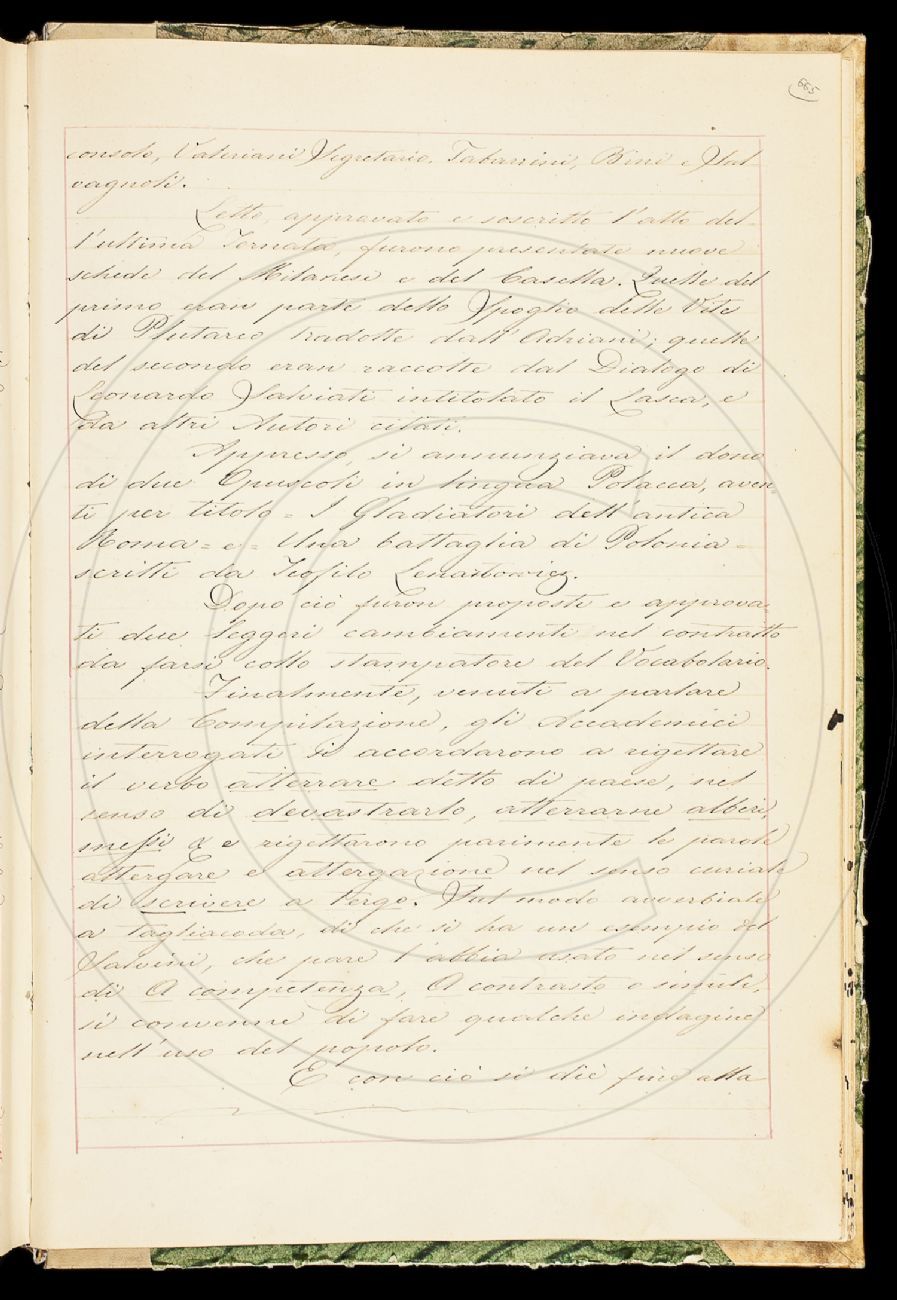 665
consolo, Valeriani Segretario. Tabarrini, Bini e Sal
vagnoli.
Letto, approvato e soscritto l'atto del-
l'ultima Tornata, furono presentate nuove
schede del Milanesi e del Casella. Quelle del
primo eran parte dello Spoglio delle Vite
di Plutarco tradotte dall'Adriani; quelle
del secondo eran raccolte dal Dialogo di
Leonardo Salviati intitolato il Lasca, e
da altri Autori citati.
Appresso, si annunziava il dono
di due Opuscoli in lingua Polacca, aven-
ti per titolo = I Gladiatori dell'antica
Roma = e = Una battaglia di Polonia =
scritti da Teofilo Lenartowicz.
Dopo ciò furon proposti e approva-
ti due leggeri cambiamenti nel contratto
da farsi collo stampatore del Vocabolario.
Finalmente, venuti a parlare
della Compilazione, gli Accademici
interrogati si accordarono a rigettare
il verbo atterrare detto di paese, nel
senso di devastrarlo, atterrarne alberi,
messi & e rigettarono parimente le parole
attergare e attergazione nel senso curiale
di scrivere a tergo. Sul modo avverbiale
a tagliacoda, di che si ha un esempio del
Salvini, che pare l'abbia usato nel senso
di A competenza, A contrasto o simili,
si convenne di fare qualche indagine
nell'uso del popolo.
E con ciò si diè fine alla